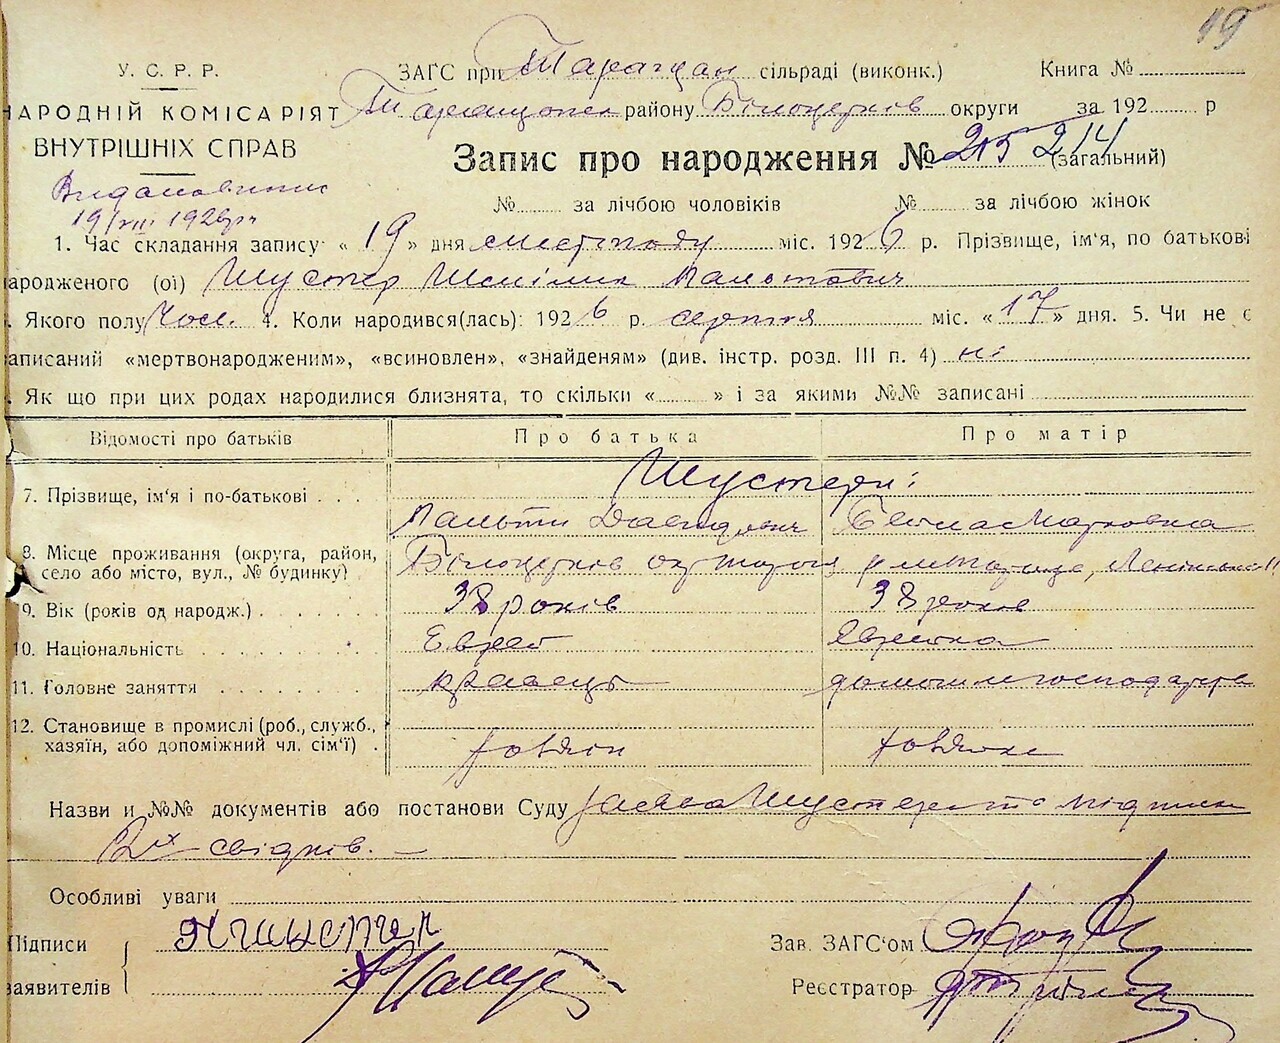 19
У. С. Р. Р.
НАРОДНІЙ КОМІСАРІЯТ
ВНУТРІШНІХ СПРАВ
19/VIII 1926 р
ЗАГС при Таращан сільраді (виконк.) Книга №
Таращанск району Білоцерків округи за 192 р
Запис про народження № 215 214 (загальний)
№ за лічбою чоловіків № за лічбою жінок
1. Час складання запису „ 19 " дня міс. 1926 р. Прізвище, ім'я, по батькові
ародженого (ої) Шустер Пальтович
. Якого полу Чол. 4. Коли народився(лась): 1926 р. серпня міс. „ 17 " дня. 5. Чи не є
аписаний «мертвонародженим», «всиновлен», «знайденям» (див. інстр. розд. III п. 4) ні
. Як що при цих родах народилися близнята, то скільки « » і за якими №№ записані
Відомості про батьків Про батька Про матір
7. Прізвище, ім'я і по-батькові . . . Шустери:
Пальти Давидович Марковна
8. Місце проживання (округа, район, село або місто, вул., № будинку) Білоцерків окр
9. Вік (років од народж.) . . . . 38 років 38 років
10. Національність . . . . . . . Еврей Еврейка
11. Головне заняття . . . . . . . кравець домашнє господарство
12. Становище в промислі (роб., служб., хазяїн, або допоміжний чл. сім'ї) . хазяїн хазяйка
Назви и №№ документів або постанови Суду Заява Шустера та підписи
2х свідків. —
Особливі уваги
Підписи
заявителів
Зав. ЗАГС'ом
Реєстратор